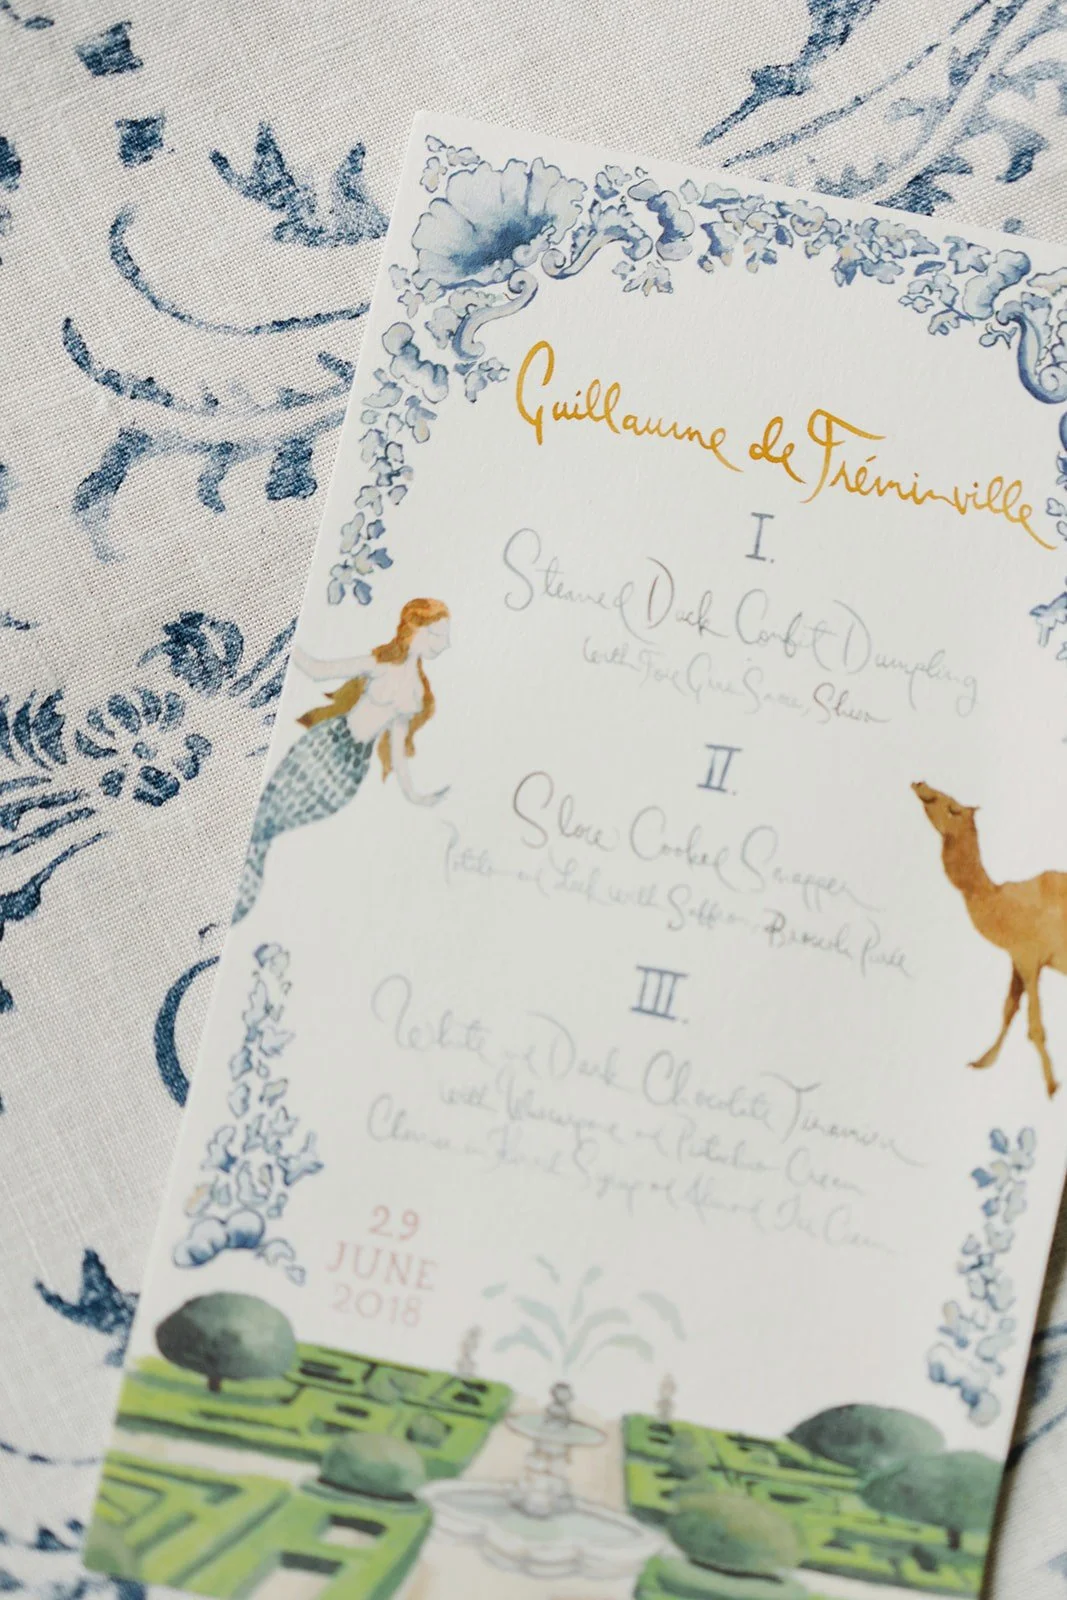 Guillaume de Tréminville
I.
Steamed Duck Confit Dumpling
with Foie Gras Sauce,
II.
Slow Cooked Snapper
Potato and Leek with Saffron, Broccoli
III.
White and Dark Chocolate Tiramisu
with Mascarpone and Pistachio Cream
Cherries in Syrup and Almond Ice Cream
29
JUNE
2018